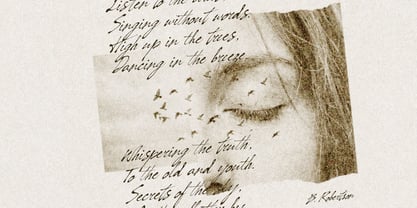 Listen to the
Singing without words.
High up in the trees,
Dancing in the breeze.
Whispering the truth,
To the old and youth.
Secrets of the
B. Robertson